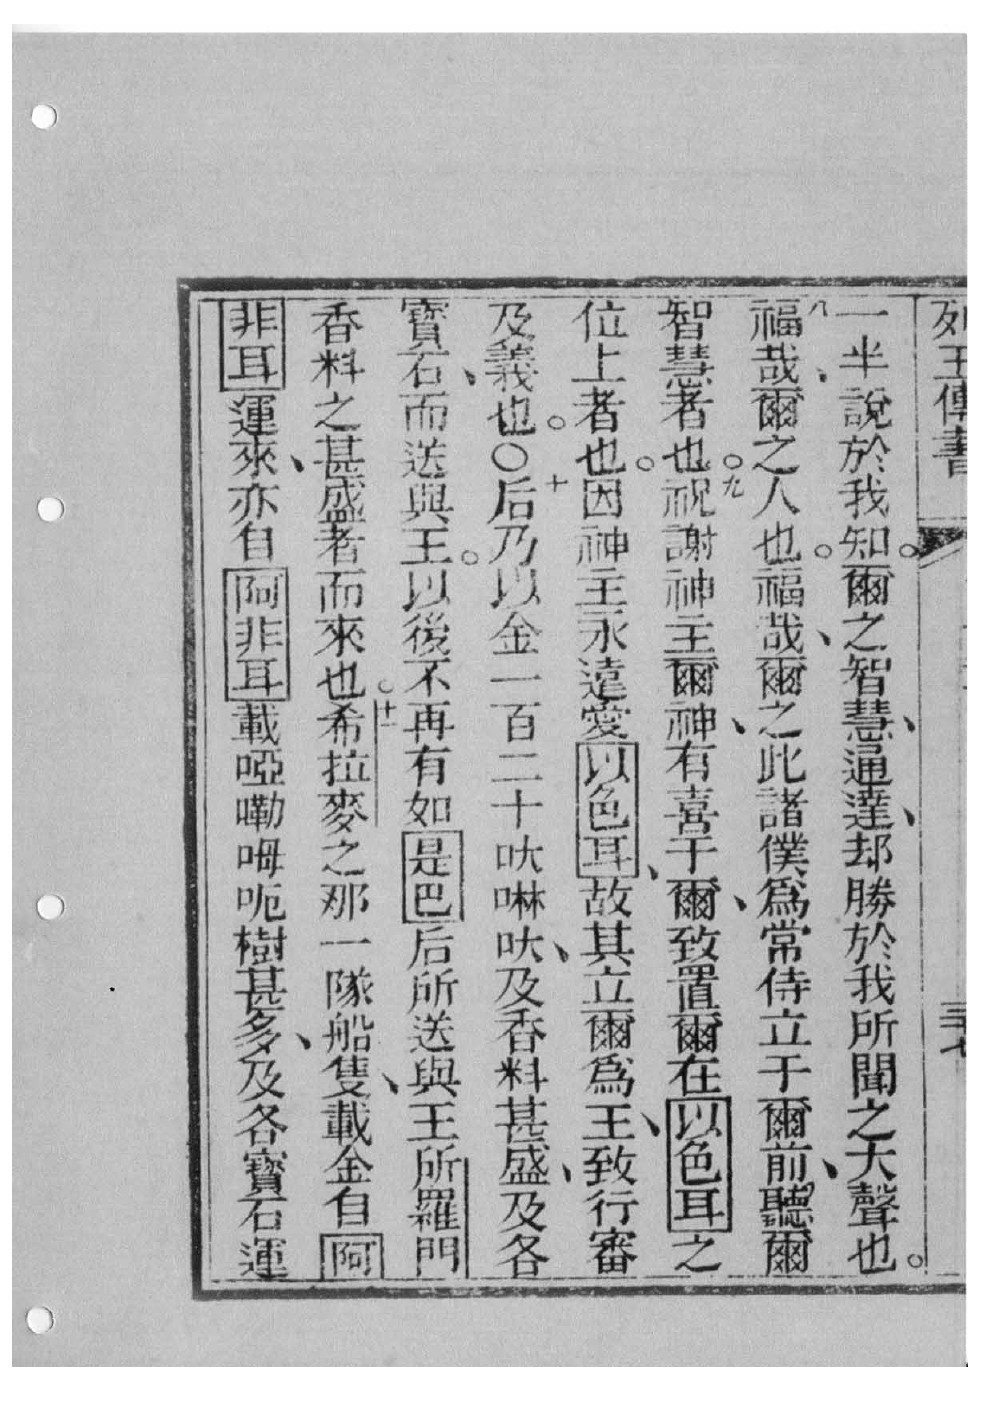 列王傳書
一半說於我知。爾之智慧、通達、却勝於我所聞之大聲也。
八福哉、爾之人也。福哉、爾之此諸僕爲常侍立于爾前、聽爾
智慧者也。九祝謝神主爾神、有喜于爾、致置爾在以色耳之
位上者也。因神主永遠愛以色耳、故其立爾爲王、致行審
及義也。○十后乃以金一百二十吠啉吠、及香料甚盛、及各
寶石、而送與王。以後不再有如是巴后所送與王所羅門
香料之甚盛者而來也。十一希拉麥之那一隊船隻、載金自阿
非耳運來、亦自阿非耳載啞嘞呣呃樹甚多、及各寶石運